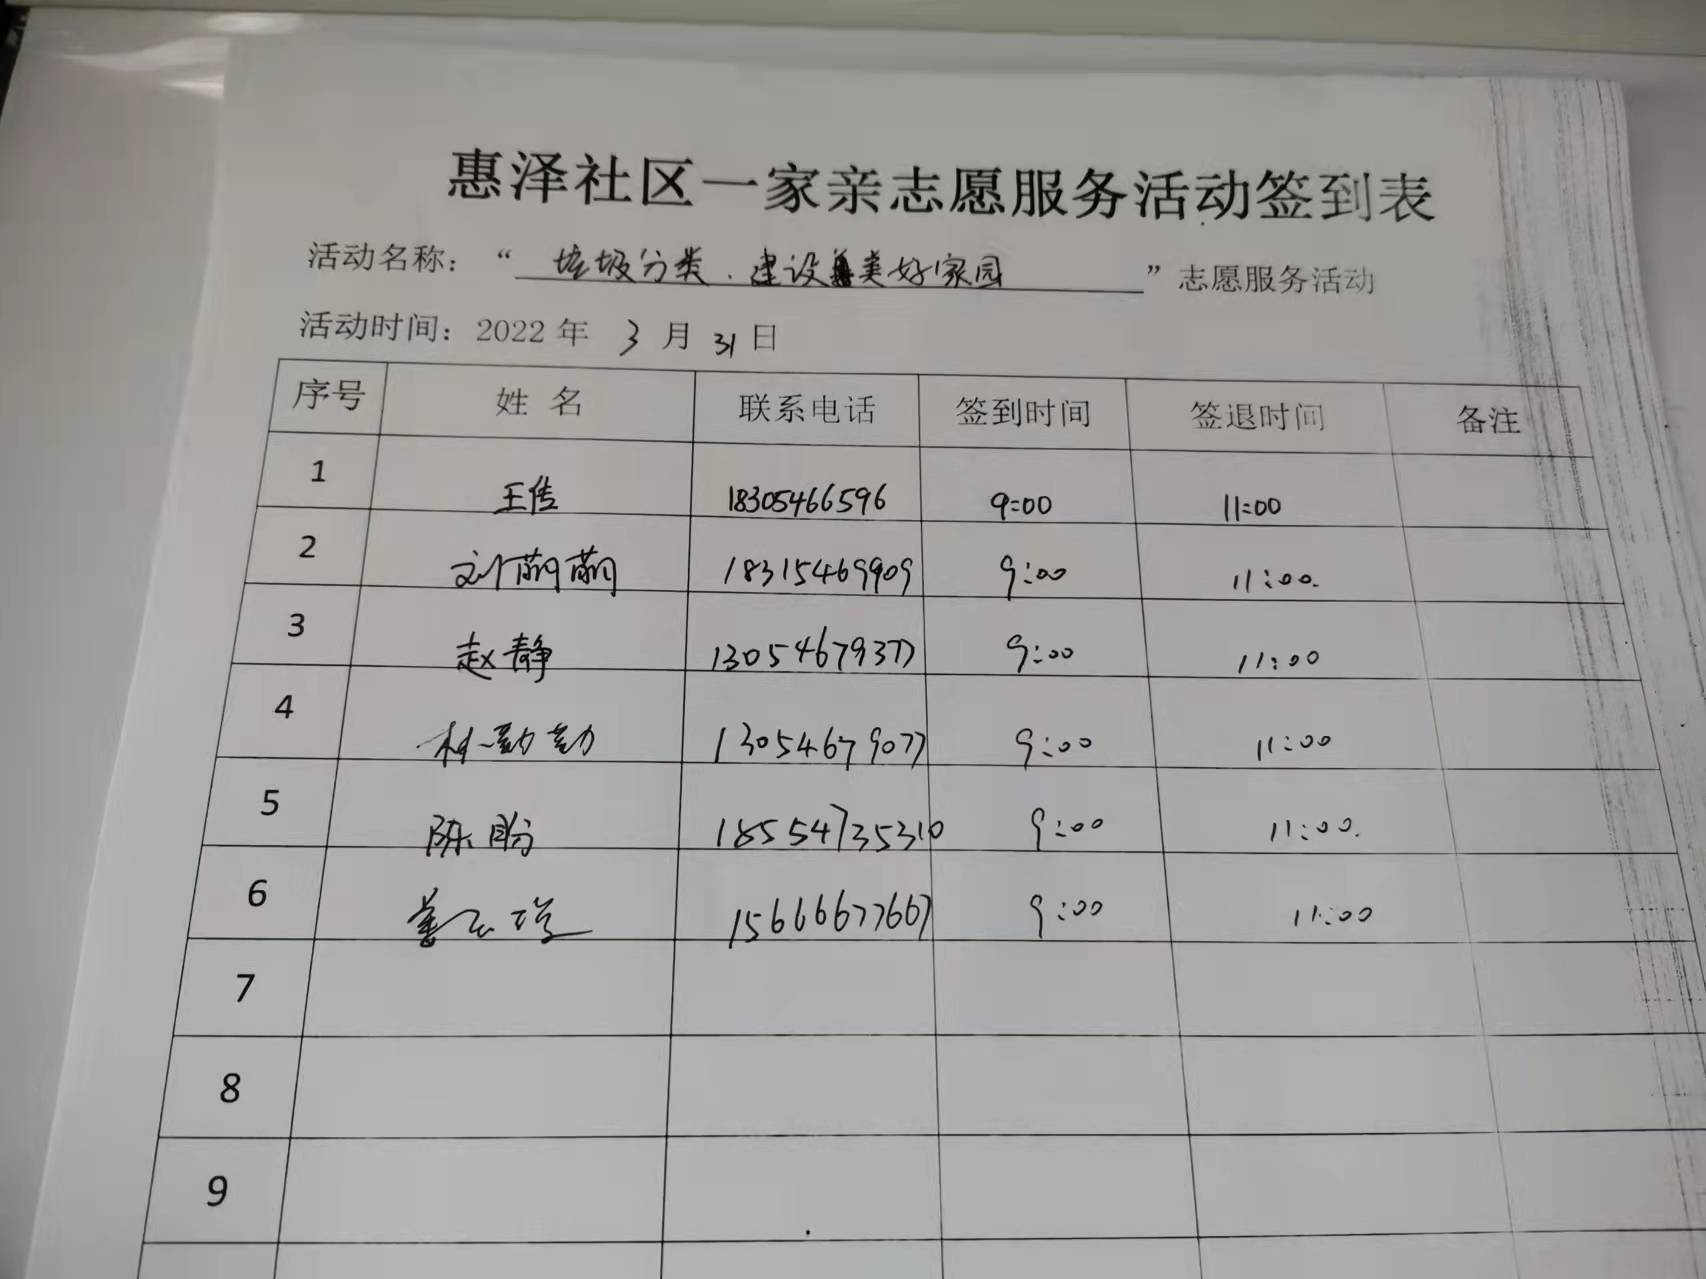 惠泽社区一家亲志愿服务活动签到表
活动名称：“垃圾分类.建设美好家园”志愿服务活动
活动时间：2022年 3月 31日
序号 姓名 联系电话 签到时间 签退时间 备注
1 王传 18305466596 9:00 11:00
2 刘萌萌 18315469909 9:00 11:00.
3 赵静 13054679377 9:00 11:00
4 林勤勤 13054679077 9:00 11:00
5 陈盼 18554735310 9:00 11:00.
6 15666677667 9:00 11:00
7
8
9